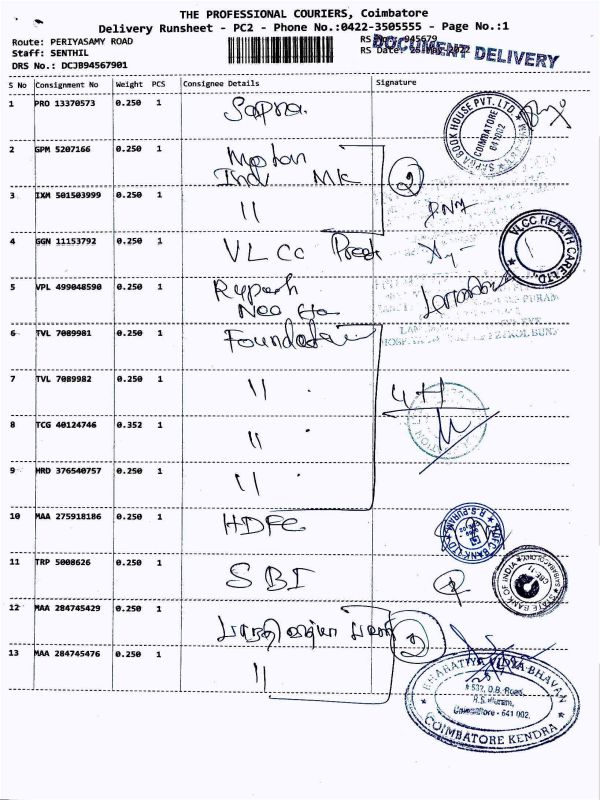 THE PROFESSIONAL COURIERS, Coimbatore
Delivery Runsheet - PC2 - Phone No.:0422-3505555 - Page No.:1
Route: PERIYASAMY ROAD
RS No.: 945679
Staff: SENTHIL
RS Date: 26 May 2022
DOCUMENT DELIVERY
DRS No.: DCJB94567901
S No Consignment No Weight PCS Consignee Details Signature
1 PRO 13370573 0.250 1 Sapna
SAPNA BOOK HOUSE PVT. LTD.
COIMBATORE
641002
2 GPM 5207166 0.250 1
Ind MK 2
3 IXM 501503999 0.250 1 "
4 GGN 11153792 0.250 1 VLCC
VLCC HEALTH CARE LTD.
5 VPL 499048590 0.250 1 Rupesh
6 TVL 7089981 0.250 1 Foundation
7 TVL 7089982 0.250 1 " 4
8 TCG 40124746 0.352 1 "
9 HRD 376540757 0.250 1 "
10 MAA 275918186 0.250 1 HDFC
HDFC BANK LTD
R.S. PURAM
11 TRP 5008626 0.250 1 SBI
STATE BANK OF INDIA
12 MAA 284745429 0.250 1 2
13 MAA 284745476 0.250 1 "
BHARATIYA VIDYA BHAVAN
# 532, D.B. Road,
R.S. Puram,
Coimbatore - 641 002.
COIMBATORE KENDRA